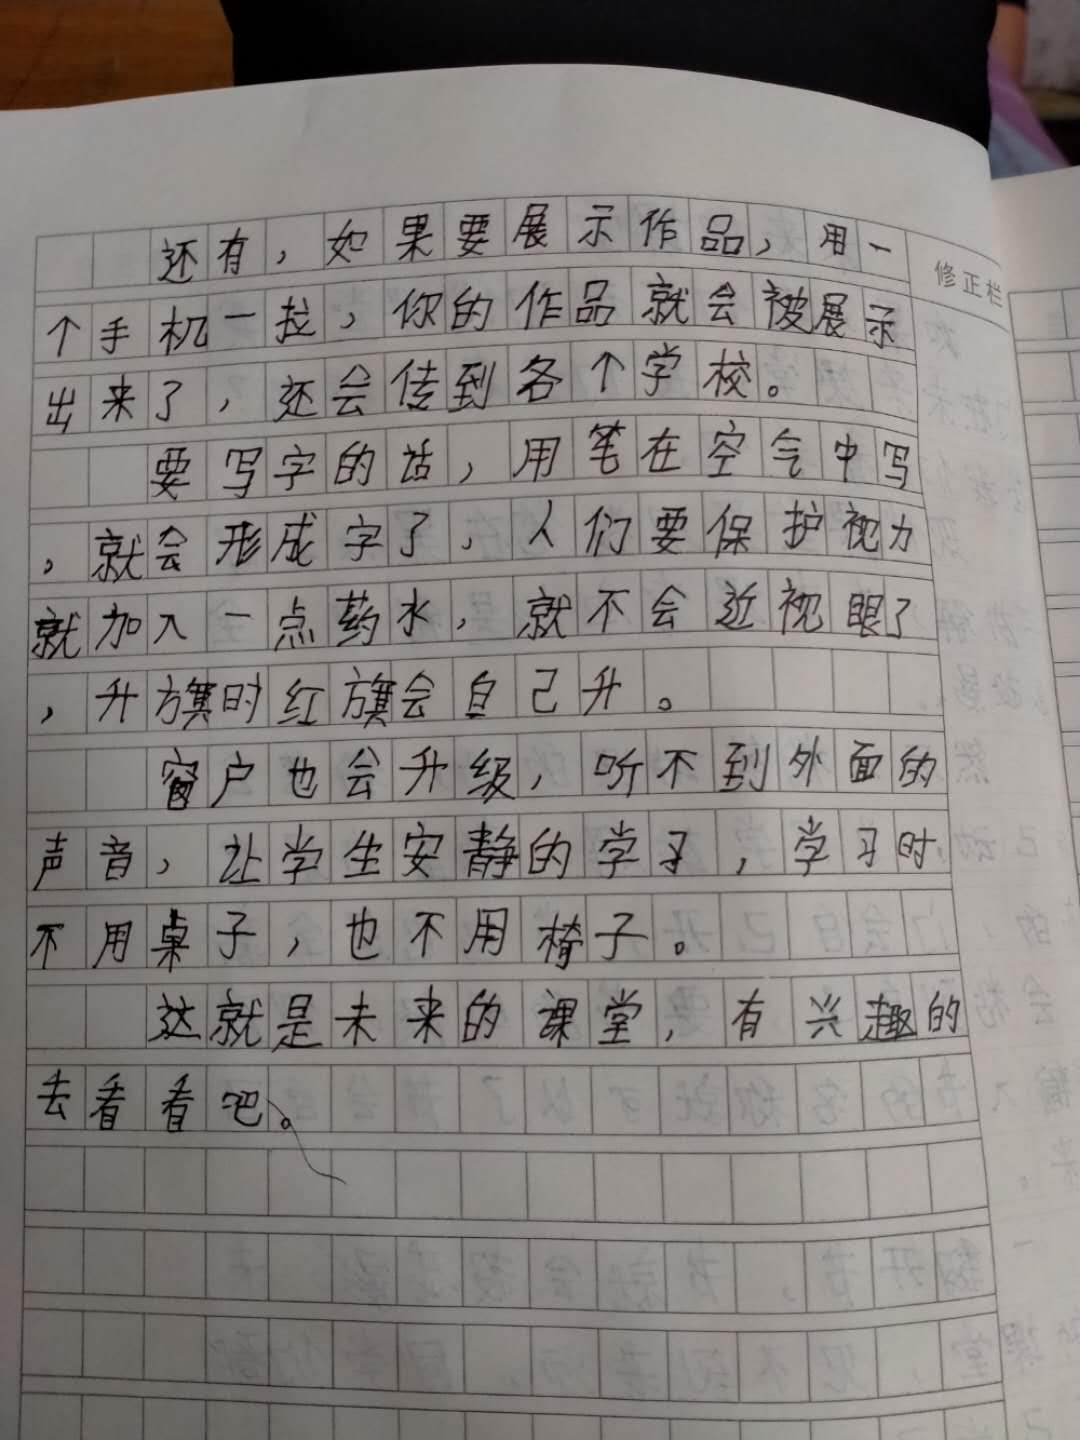 还有，如果要展示作品，用一
修正栏
个手机一拉，你的作品就会被展示
出来了，还会传到各个学校。
要写字的话，用笔在空气中写
，就会形成字了，人们要保护视力
就加入一点药水，就不会近视眼了
，升旗时红旗会自己升。
窗户也会升级，听不到外面的
声音，让学生安静的学习，学习时，
不用桌子，也不用椅子。
这就是未来的课堂，有兴趣的
去看看吧。